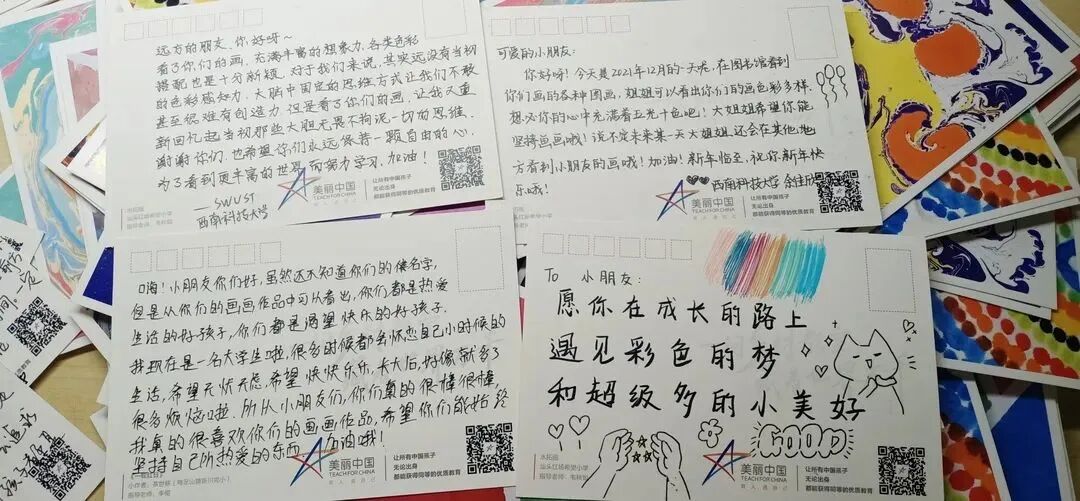 远方的朋友,你好呀~
看了你们的画,充满丰富的想象力,各类色彩
搭配也是十分新颖。对于我们来说,其实远没有当初
的色彩感知力,大脑中固定的思维方式让我们不敢
甚至很难有创造力,但是看了你们的画,让我又重
新回忆起当初那些大胆无畏不拘泥一切的思维。
谢谢你们,也希望你们永远保持一颗自由的心,
为了看到更丰富的世界而努力学习,加油!
——SWUST
西南科技大学
美丽中国
TEACH FOR CHINA
让所有中国孩子
无论出身
都能获得同等的优质教育
水拓画
汕头红场希望小学
可爱的小朋友:
你好呀!今天是2021年12月的一天呢,在图书馆看到
你们画的各种图画,姐姐可以看出你们的画色彩多样,
想必你的心中充满着五光十色吧!大姐姐希望你能
坚持画画哦!说不定未来某一天大姐姐还会在其他地
方看到小朋友的画哦!加油!新年临至,祝你新年快
乐哦!
西南科技大学
美丽中国
TEACH FOR CHINA
让所有中国孩子
无论出身
都能获得同等的优质教育
水拓画
汕头红场希望小学
嗨!小朋友你们好,虽然还不知道你们的姓名字,
但是从你们的画画作品中可以看出,你们都是热爱
生活的好孩子,你们都是渴望快乐的好孩子.
我现在是一名大学生啦,很多时候都会怀念自己小时候的
生活,希望无忧无虑,希望快快乐乐,长大后,好像就多了
很多烦恼啦.所以小朋友们,你们真的很棒很棒,
我真的很喜欢你们的画画作品,希望你们能始终
坚持自己所热爱的东西 加油哦!
美丽中国
TEACH FOR CHINA
让所有中国孩子
无论出身
都能获得同等的优质教育
To 小朋友:
愿你在成长的路上
遇见彩色的梦
和超级多的小美好
GOOD
美丽中国
TEACH FOR CHINA
让所有中国孩子
无论出身
都能获得同等的优质教育
水拓画
汕头红场希望小学